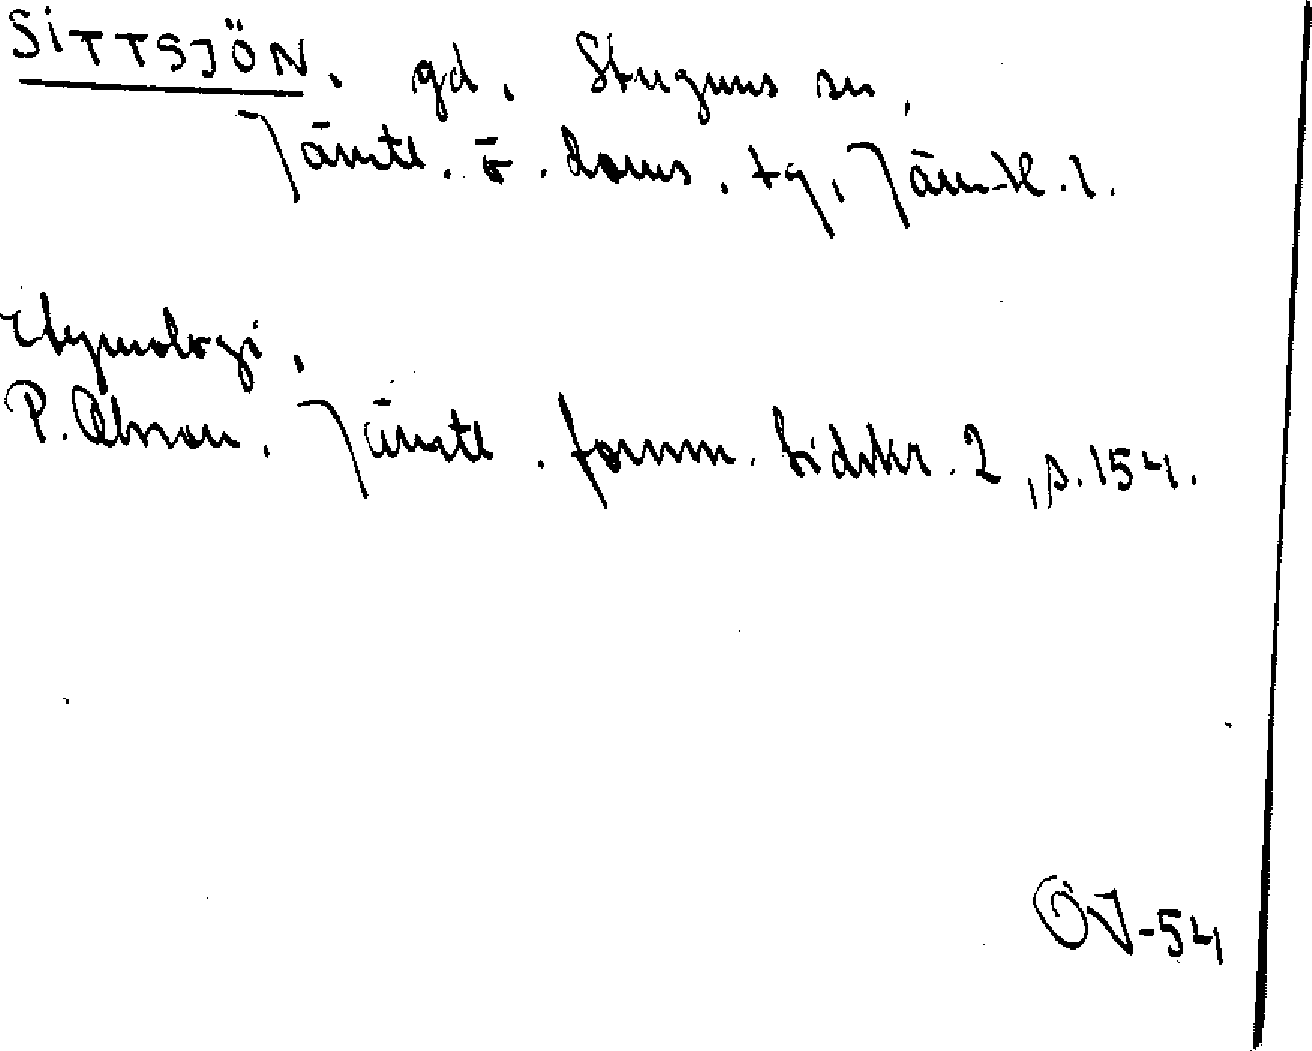 SITTSJÖN. gd. Stuguns sn.
Jämtl. ö. doms. tg, Jämtl. l.
Etymologi.
P. Olsson. Jämtl. fornm. tidskr. 2, s. 154.
OJ-54